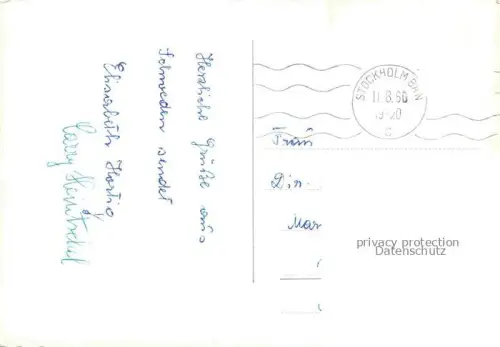 Herzliche Grüße aus
Schweden sendet
Elisabeth
STOCKHOLM BAN
11.8.60
19-20
C
Fräu
Din.
Mar
privacy protection
Datenschutz